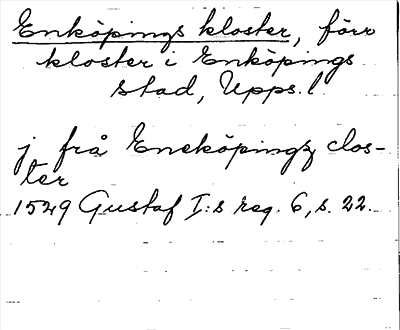 Enköpings kloster, förr
kloster i Enköpings
stad, Upps. l.
j från Eneköpingz clos-
ter
1529 Gustaf I:s reg. 6, s. 22.